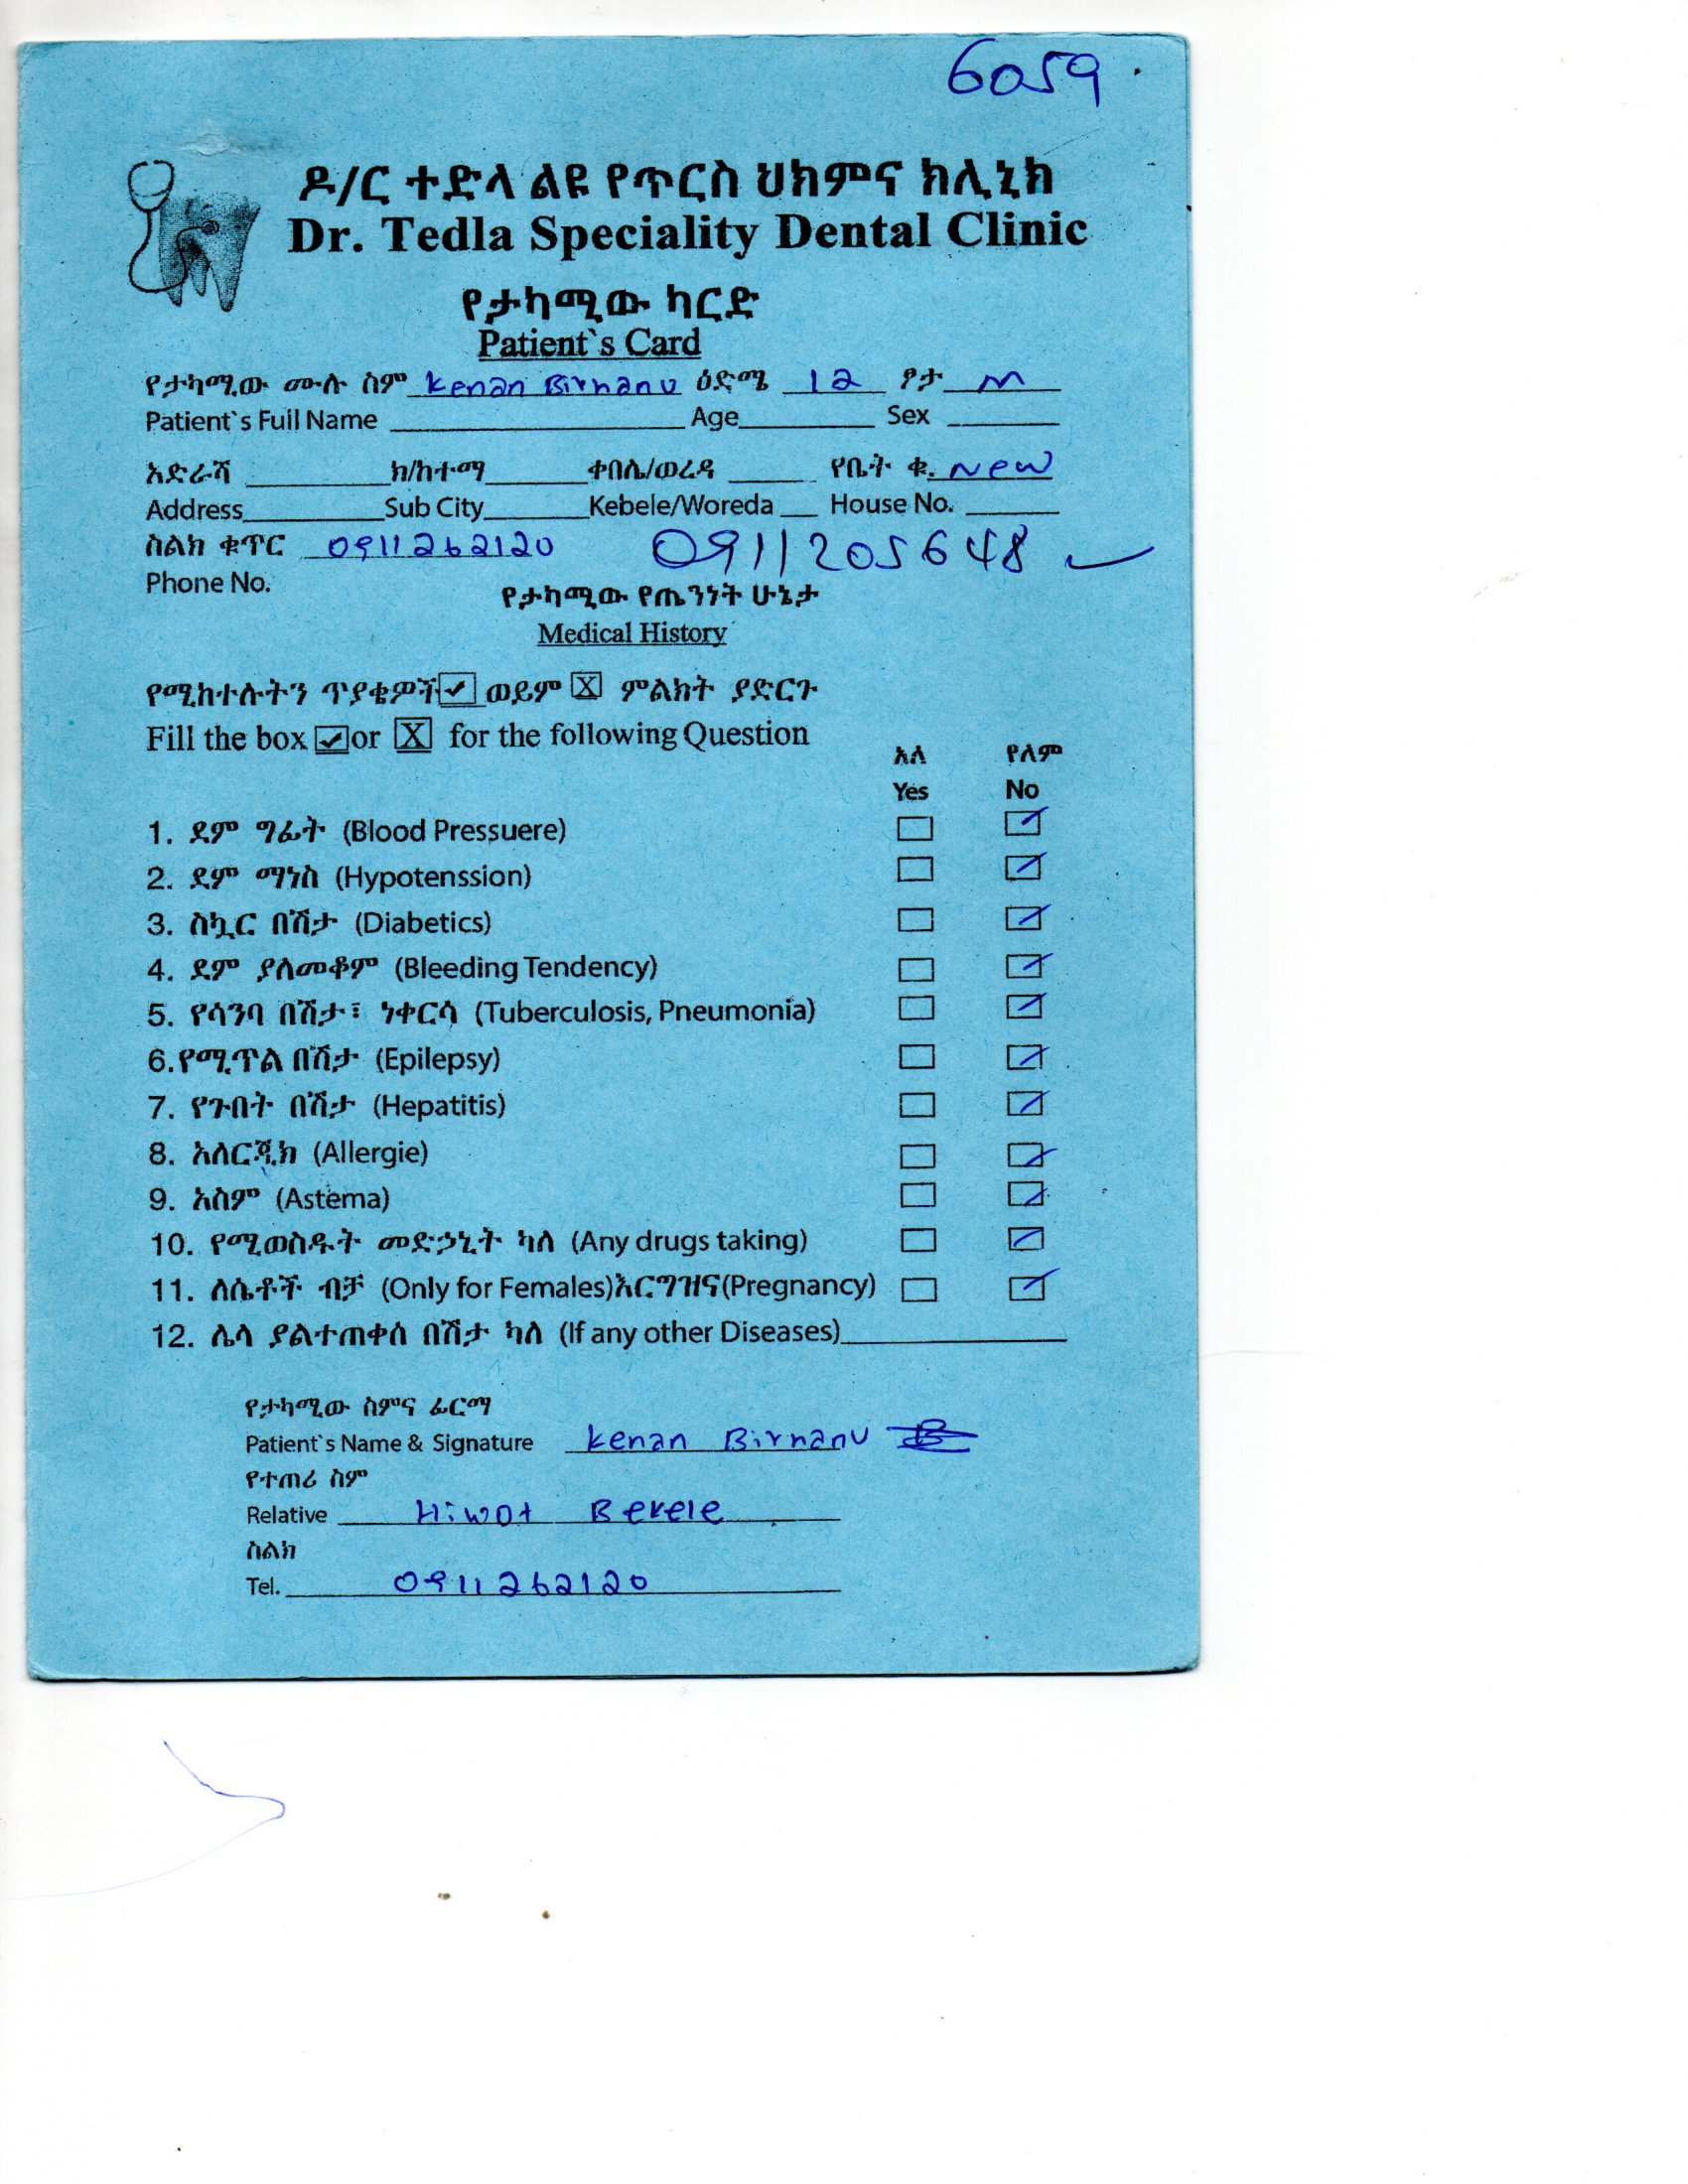 6059
ዶ/ር ተድላ ልዩ የጥርስ ህክምና ክሊኒክ
Dr. Tedla Speciality Dental Clinic
የታካሚው ካርድ
Patient`s Card
የታካሚው ሙሉ ስም Kenan Birhanu ዕድሜ 12 ፆታ M
Patient`s Full Name Age Sex
አድራሻ ክ/ከተማ ቀበሌ/ወረዳ የቤት ቁ. New
Address Sub City Kebele/Woreda House No.
ስልክ ቁጥር 0911262120 0911205648
Phone No.
የታካሚው የጤንነት ሁኔታ
Medical History
የሚከተሉትን ጥያቄዎች ✓ ወይም X ምልክት ያድርጉ
Fill the box ✓ or X for the following Question
አለ የለም
Yes No
1. ደም ግፊት (Blood Pressuere)
2. ደም ማነስ (Hypotenssion)
3. ስኳር በሽታ (Diabetics)
4. ደም ያለመቆም (Bleeding Tendency)
5. የሳንባ በሽታ፣ ነቀርሳ (Tuberculosis, Pneumonia)
6.የሚጥል በሽታ (Epilepsy)
7. የጉበት በሽታ (Hepatitis)
8. አለርጂክ (Allergie)
9. አስም (Astema)
10. የሚወስዱት መድኃኒት ካለ (Any drugs taking)
11. ለሴቶች ብቻ (Only for Females)እርግዝና(Pregnancy)
12. ሌላ ያልተጠቀሰ በሽታ ካለ (If any other Diseases)
የታካሚው ስምና ፊርማ
Patient`s Name & Signature Kenan Birhanu
የተጠሪ ስም
Relative Hiwot Bekele
ስልክ
Tel. 0911262120